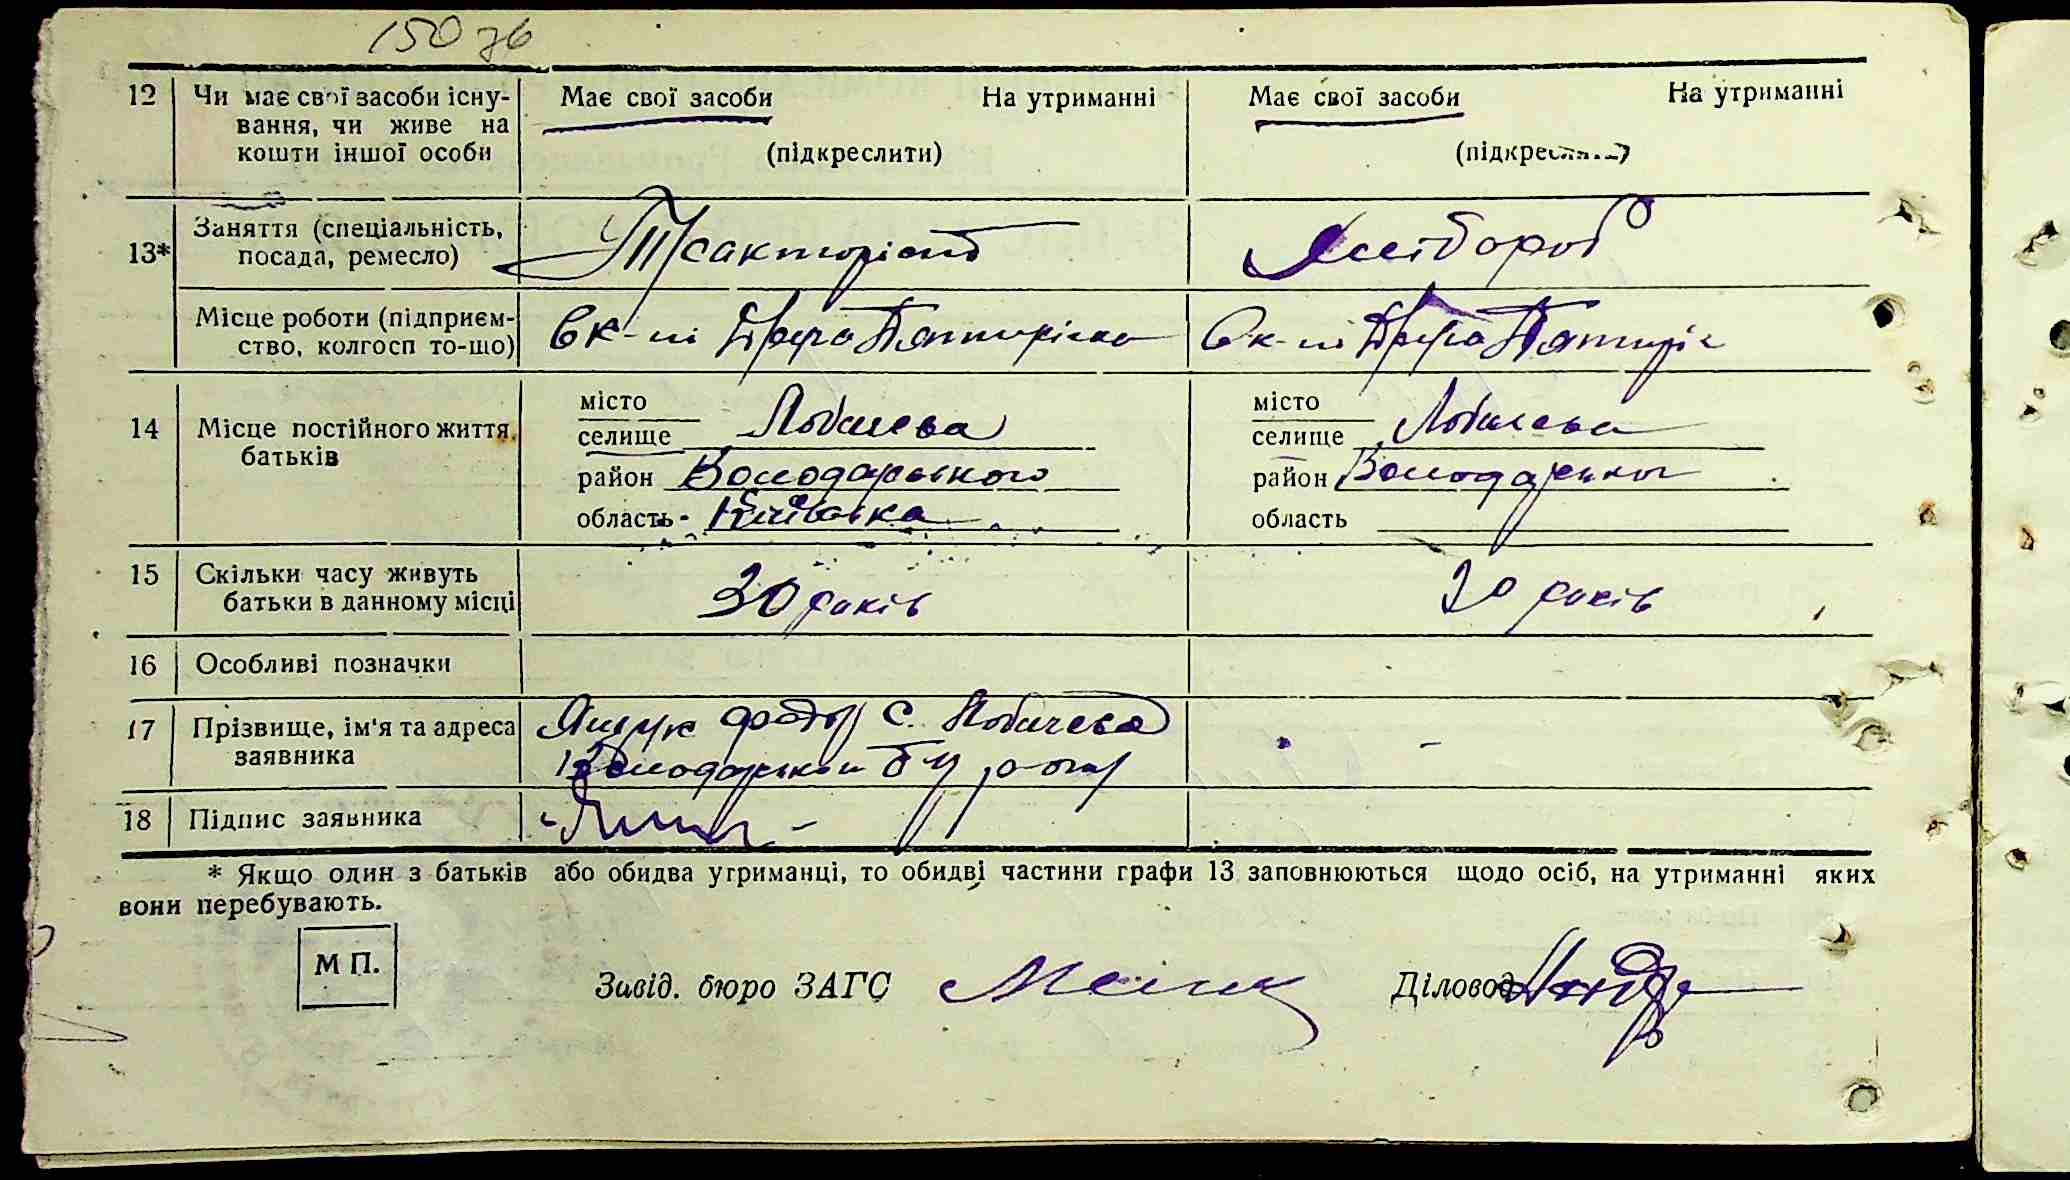 150 зв
12 Чи має свої засоби існу- Має свої засоби На утриманні Має свої засоби На утриманні
вання, чи живе на
кошти іншої особи (підкреслити) (підкреслити)
13* Заняття (спеціальність, Тракторіст Хлібороб
посада, ремесло)
Місце роботи (підприєм- Друга Пятирічка Друга Пятиріч
ство, колгосп то-що)
14 Місце постійного життя батьків
місто місто
селище Лобачева селище Лобачева
район Володарського район Володарського
область Київська область
15 Скільки часу живуть 30 років 20 років
батьки в данному місці
16 Особливі позначки
17 Прізвище, ім'я та адреса Ящук Федор С. Лобачева
заявника Володарський
18 Підпис заявника
* Якщо один з батьків або обидва утриманці, то обидві частини графи 13 заповнюються щодо осіб, на утриманні яких
вони перебувають.
М П.
Завід. бюро ЗАГС Діловод